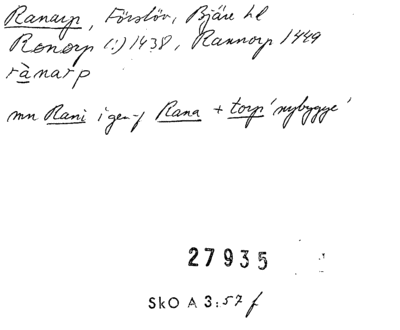 Ranarp, Förslöv, Bjäre hd
Renorp (!) 1438, Rannorp 1449
rànarp
mn Rani i gen-f Rana + torp 'nybygge'
27935
SkO A 3:57 f